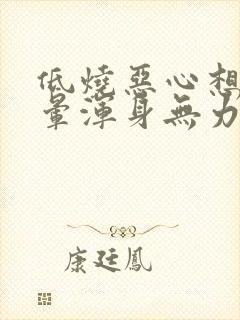 低燒惡心想
暈渾身無力
康廷鳳